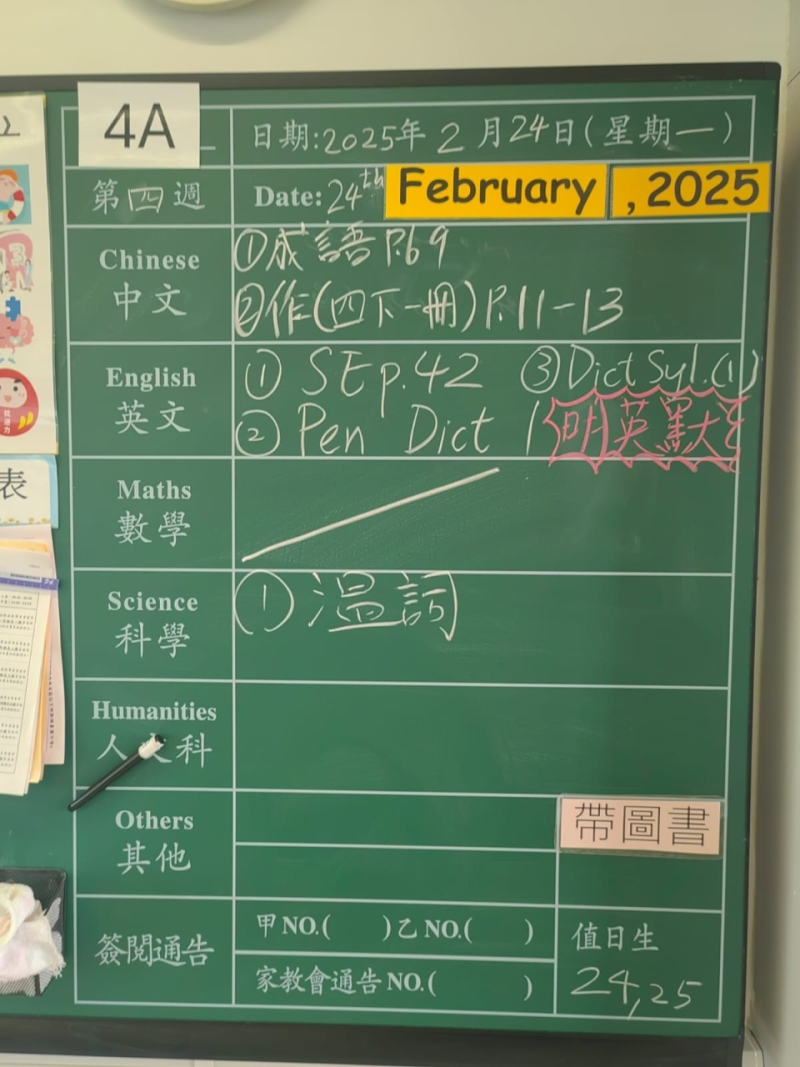 4A
日期:2025年2月24日(星期一)
第四週
Date: 24th February, 2025
Chinese
中文
①成語 P.69
②作(四下一冊) P.11-13
English
英文
① SE p.42 ③ Dict Syl.(1)
② Pen Dict 1 明英默
Maths
數學
Science
科學
① 溫詞
Humanities
人文科
Others
其他
帶圖書
簽閱通告
甲NO.( )乙NO.( )
家教會通告NO.( )
值日生
24,25
表